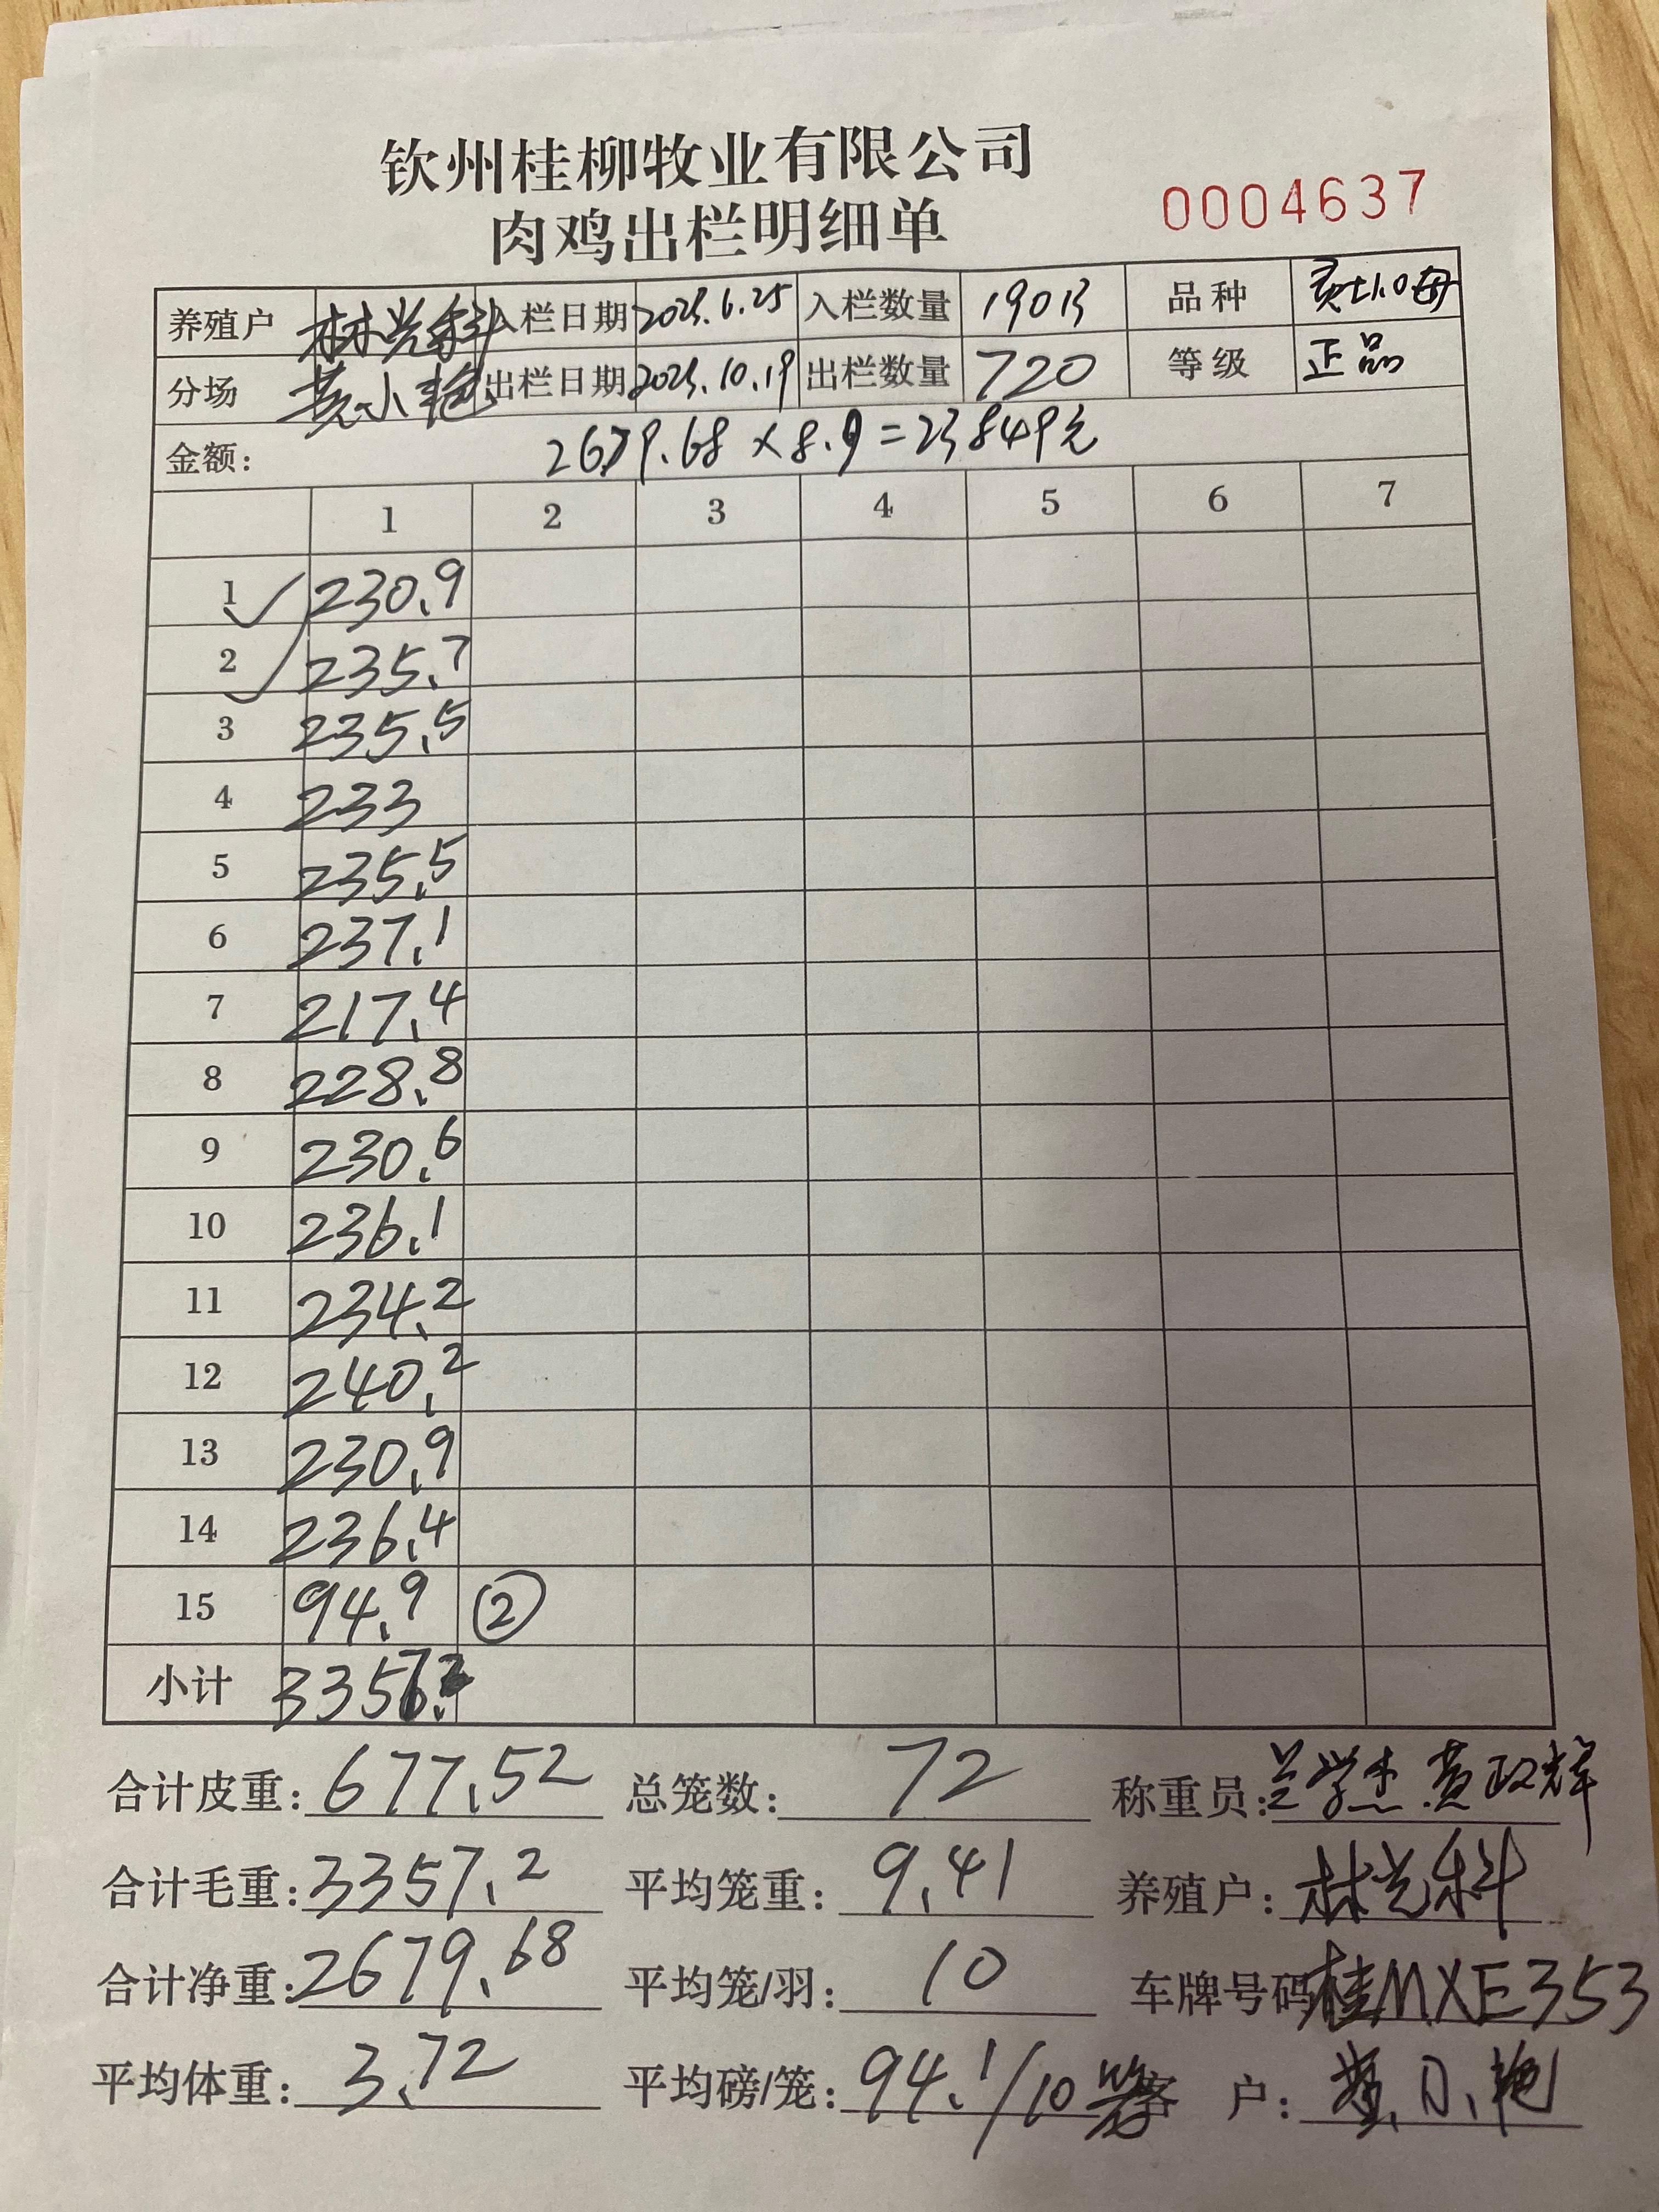 钦州桂柳牧业有限公司
肉鸡出栏明细单
0004637
养殖户 林光科 入栏日期 2023.6.25 入栏数量 19013 品种
分场 黄小艳 出栏日期 2023.10.19 出栏数量 720 等级 正品
金额: 2679.68×8.9=23849元
1 2 3 4 5 6 7
1 230.9
2 235.7
3 235.5
4 233
5 235.5
6 237.1
7 217.4
8 228.8
9 230.6
10 236.1
11 234.2
12 240.2
13 230.9
14 236.4
15 94.9 ②
小计 3357.2
合计皮重: 677.52 总笼数: 72 称重员: 黄政辉
合计毛重: 3357.2 平均笼重: 9.41 养殖户: 林光科
合计净重: 2679.68 平均笼/羽: 10 车牌号码 桂MXE353
平均体重: 3.72 平均磅/笼: 94.1/10 客 户: 黄小艳